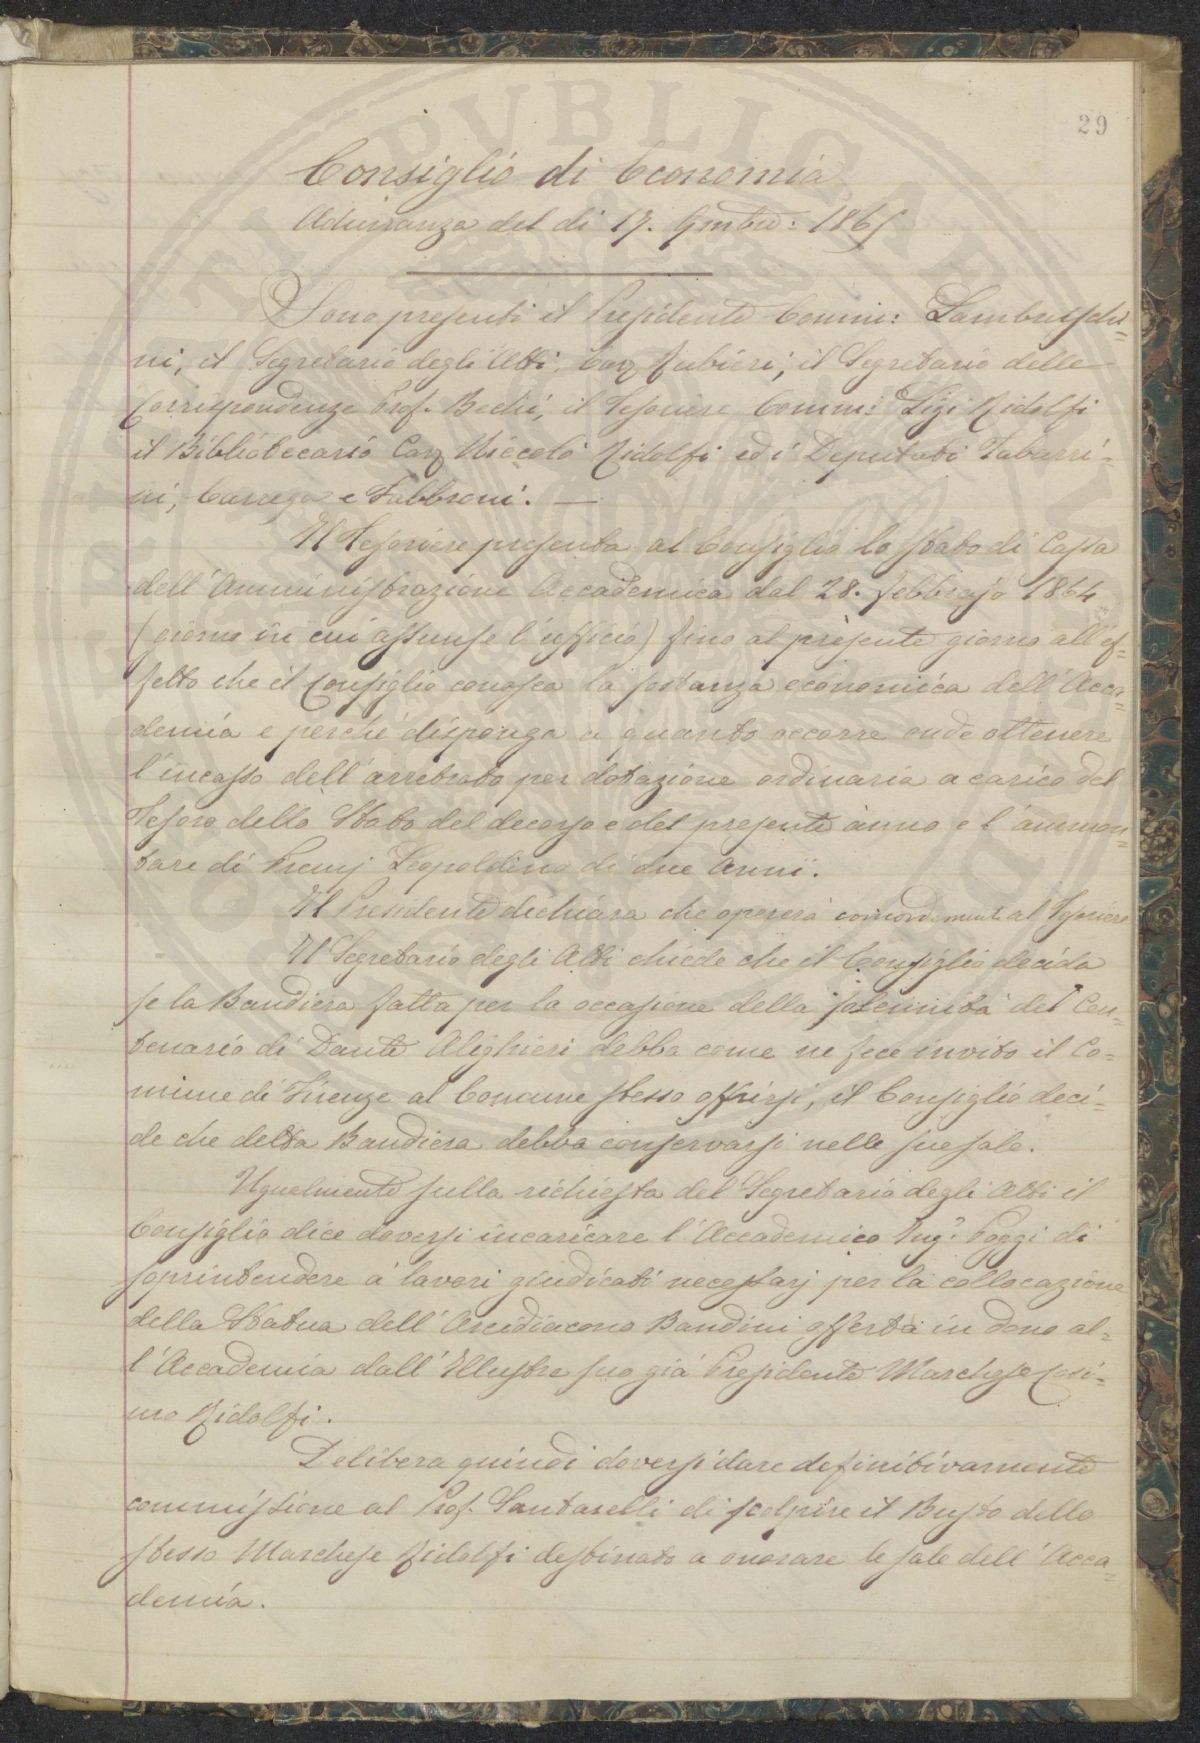 29
Consiglio di Economia
Adunanza del dì 17. 9mbre: 1865
Sono presenti il Presidente Comm: Lambruschi=
ni, il Segretario degli Atti Cav. Rubieri; il Segretario delle
Corrispondenze Prof. Bechi, il Tesoriere Comm: Ligi Ridolfi
il Bibliotecario Cav Niccolò Ridolfi ed i Deputati Tabarri=
ni, Carrega e Fabbroni. —
Il Tesoriere presenta al Consiglio lo Stato di Cassa
dell'Amministrazione Accademica dal 28. febbrajo 1864
(giorno in cui assunse l'ufficio) fino al presente giorno all'ef=
fetto che il Consiglio conosca la sostanza economica dell'Acca=
demia e perché disponga a quanto occorre onde ottenere
l'incasso dell'arretrato per dotazione ordinaria a carico del
Tesoro dello Stato del decorso e del presente anno e l'ammon=
tare di Premj Leopoldino di due Anni.
Il Presidente dichiara che opererà concordemente al Tesoriere
Il Segretario degli Atti chiede che il Consiglio decida
se la Bandiera fatta per la occasione della solennità del Cen=
tenario di Dante Alighieri debba come ne fece invito il Co=
mune di Firenze al Comune stesso offrirsi, il Consiglio deci=
de che detta Bandiera debba conservarsi nelle sue sale.
Ugualmente sulla richiesta del Segretario degli Atti il
Consiglio dice doversi incaricare l'Accademico Ing. Poggi di
soprintendere a' lavori giudicati necessarj per la collocazione
della Statua dell'Arcidiacono Bandini offerta in dono al=
l'Accademia dall'Illustre suo già Presidente Marchese Cosi=
mo Ridolfi.
Delibera quindi doversi dare definitivamente
commissione al Prof. Santarelli di scolpire il Busto dello
stesso Marchese Ridolfi destinato a onorare le sale dell'Acca=
demia.